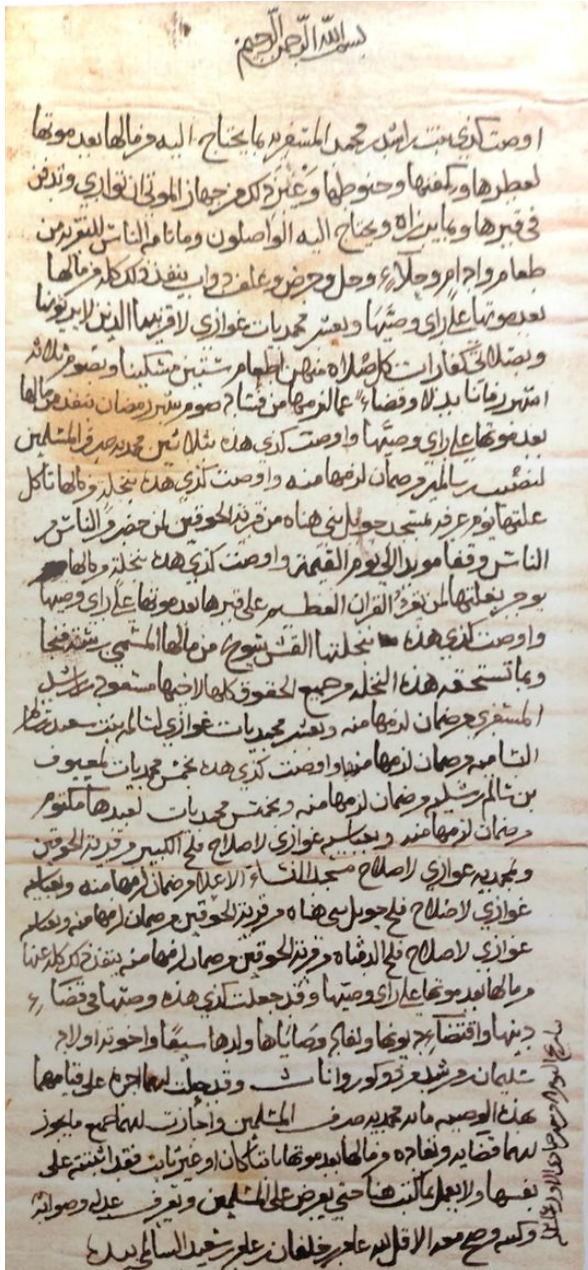 بسم الله الرحمن الرحيم
اوصت كذي بنت راشد بن محمد المسفريه بما يحتاج اليه من مالها بعد موتها
لعطرها وكفنها وحنوطها وغير ذلك من جهاز الموتى ان تواري وتدفن
في قبرها وبما يحتاج اليه الواصلون ومأتم الناس للتعزية من
طعام وادام وحلاء وحل وحرض وعلف دواب ينفذ ذلك كله من مالها
بعد موتها على راي وصيها وبعشر محمديات غوازي لاقربيها الذين لا يرثونها
وبصلا كفارات كل صلاه منهن اطعام ستين مسكينا وبصوم ثلاثة
اشهر زمانا بدلا وقضاء عما لزمها من صوم شهر رمضان تنفذ من مالها
بعد موتها على راي وصيها واوصت كذي هذه بثلاثين محمديه صرف المسلمين
بن سالم من ضمان لزمها منه واوصت كذي هذه بنخلة من مالها تاكل
غلتها يوم عرفه لمسجد حويل بني هناه من قرية الحوقين لمن حضر من الناس
الناس وقفا موبدا الى يوم القيمة واوصت كذي هذه بنخلة من مالها
يوجر بغلتها لمن يقرء القران العظيم على قبرها بعد موتها على راي وصيها
واوصت كذي هذه بنخلتها القش من مالها المسمى
وبما تستحقه هذه النخلة من جميع الحقوق كلها لاخيها مسعود بن راشد
المسفري من ضمان لزمها منه وبعشر محمديات غوازي لسالمه بنت سعيد
من ضمان لزمها منها واوصت كذي هذه بخمس محمديات لمعيوف
بن سالم بن سليم من ضمان لزمها منه وبخمس محمديات لعبدها مكتوم
من ضمان لزمها منه وبعباسيه غوازي لاصلاح فلج الكبير من قرية الحوقين
وبمحمديه غوازي لاصلاح مسجد النساء الاعلا من ضمان لزمها منه وبعباسيه
غوازي لاصلاح فلج حويل بني هناه من قرية الحوقين من ضمان لزمها منه وبعباسيه
غوازي لاصلاح فلج من قرية الحوقين من ضمان لزمها منه ينفذ ذلك كله عنها
من مالها بعد موتها على راي وصيها وقد جعلت كذي هذه وصيها في قضاء
دينها واقتضاء ديونها وانفاذ وصاياها ولدها سيفا واخوته اولاد
سليمان بن رشيد من ذكور واناث وقد جعلت لهما اجرة على قيامهما
بهذه الوصيه مائة محمديه صرف المسلمين واجازت لهما جميع ما يجوز
لهما قضايه ونفاذه من مالها بعد موتها ثابتا كان او غير ثابت فقد اثبتته على
نفسها ولا يعمل بما كتبت هنا حتى يعرض على المسلمين ويعرف عدله وصوابه
وكتبه وصح معه الاقل لله عامر بن خلفان بن عامر بن سعيد السالمي بيده